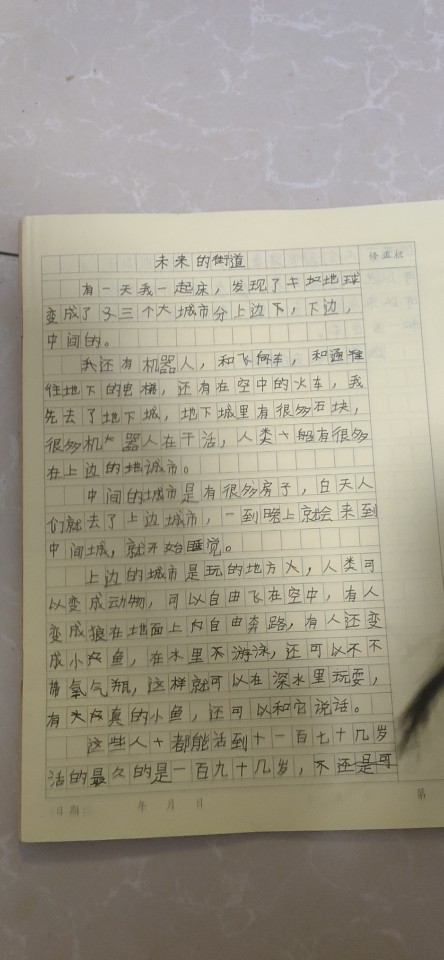 未来的街道
修正栏
有一天我一起床，发现了地球
变成了三个大城市分上边下，下边，
中间的。
我还有机器人，和飞何车，和通往
往地下的电梯，还有在空中的火车，我
先去了地下城，地下城里有很多石块，
很多机器人在干活，人类般有很多
在上边的城市。
中间的城市是有很多房子，白天人
们就去了上边城市，一到晚上就会来到
中间城，就开始睡觉。
上边的城市是玩的地方，人类可
以变成动物，可以自由飞在空中，有人
变成狼在地面上自由奔路，有人还变
成小鱼，在水里不游泳，还可以不不
带氧气瓶，这样就可以在深水里玩耍，
有真的小鱼，还可以和它说话。
这些人都能活到十一百七十几岁
活的最久的是一百九十几岁，不还是可
日期 年 月 日
第